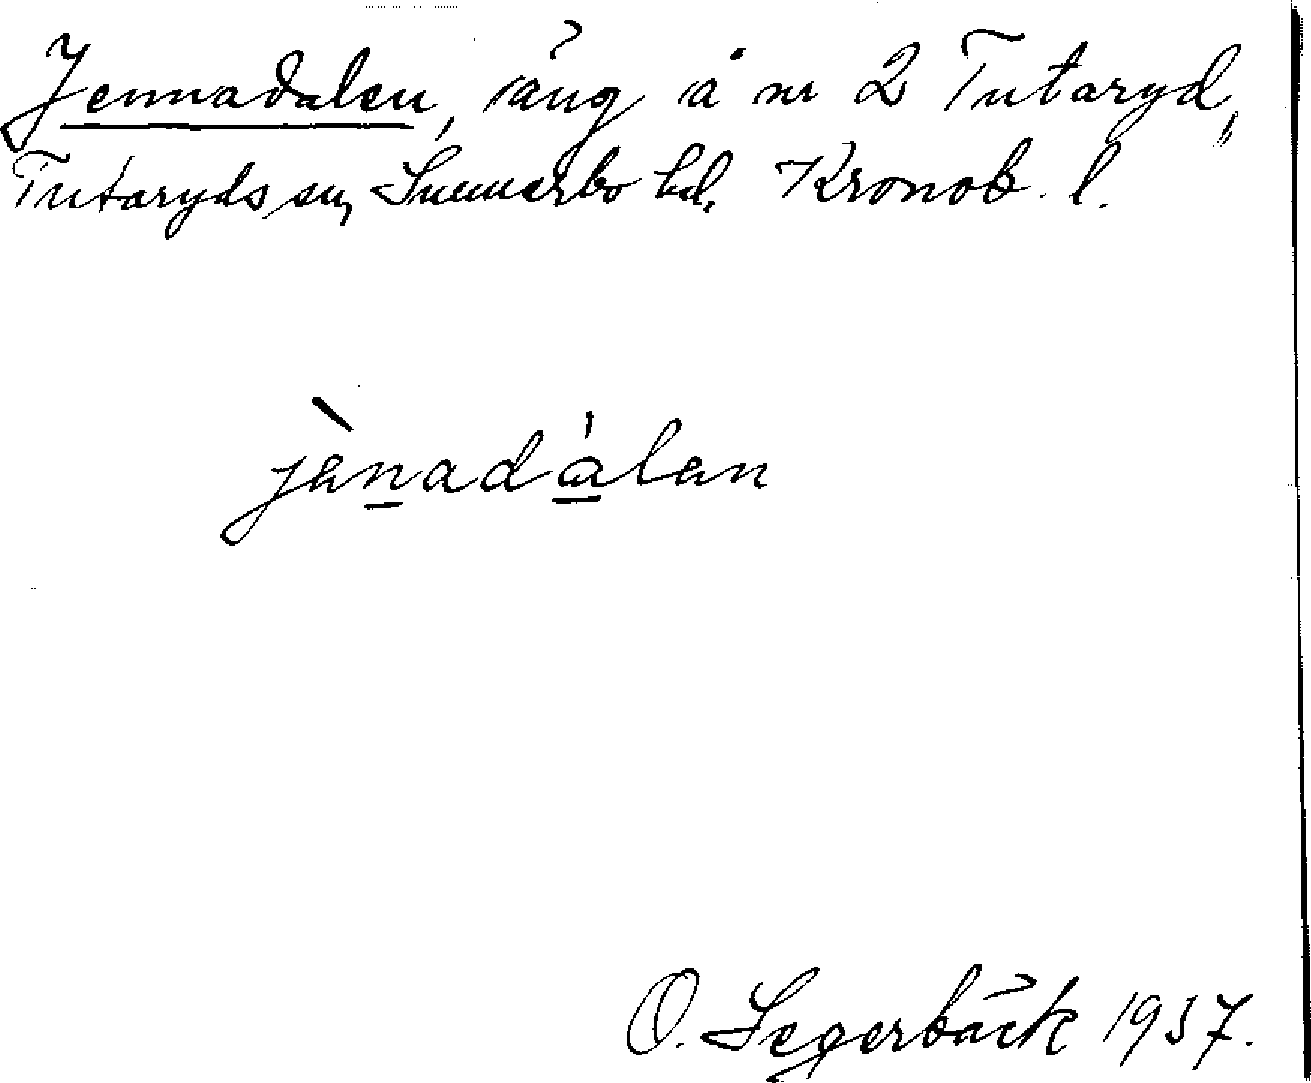 Jennadalen, äng å nr 2 Tutaryd,
Tutaryds sn, Sunnerbo hd, Kronob. l.
jènadálen
O. Segerbäck 1937.